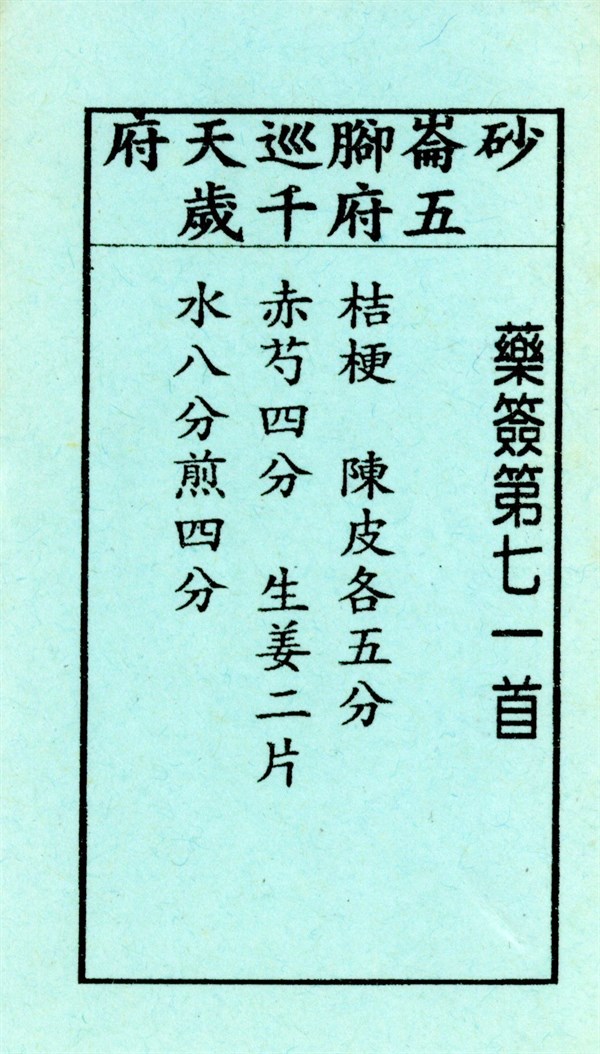 砂崙腳巡天府
五府千歲
藥簽第七一首
桔梗 陳皮各五分
赤芍四分 生姜二片
水八分煎四分